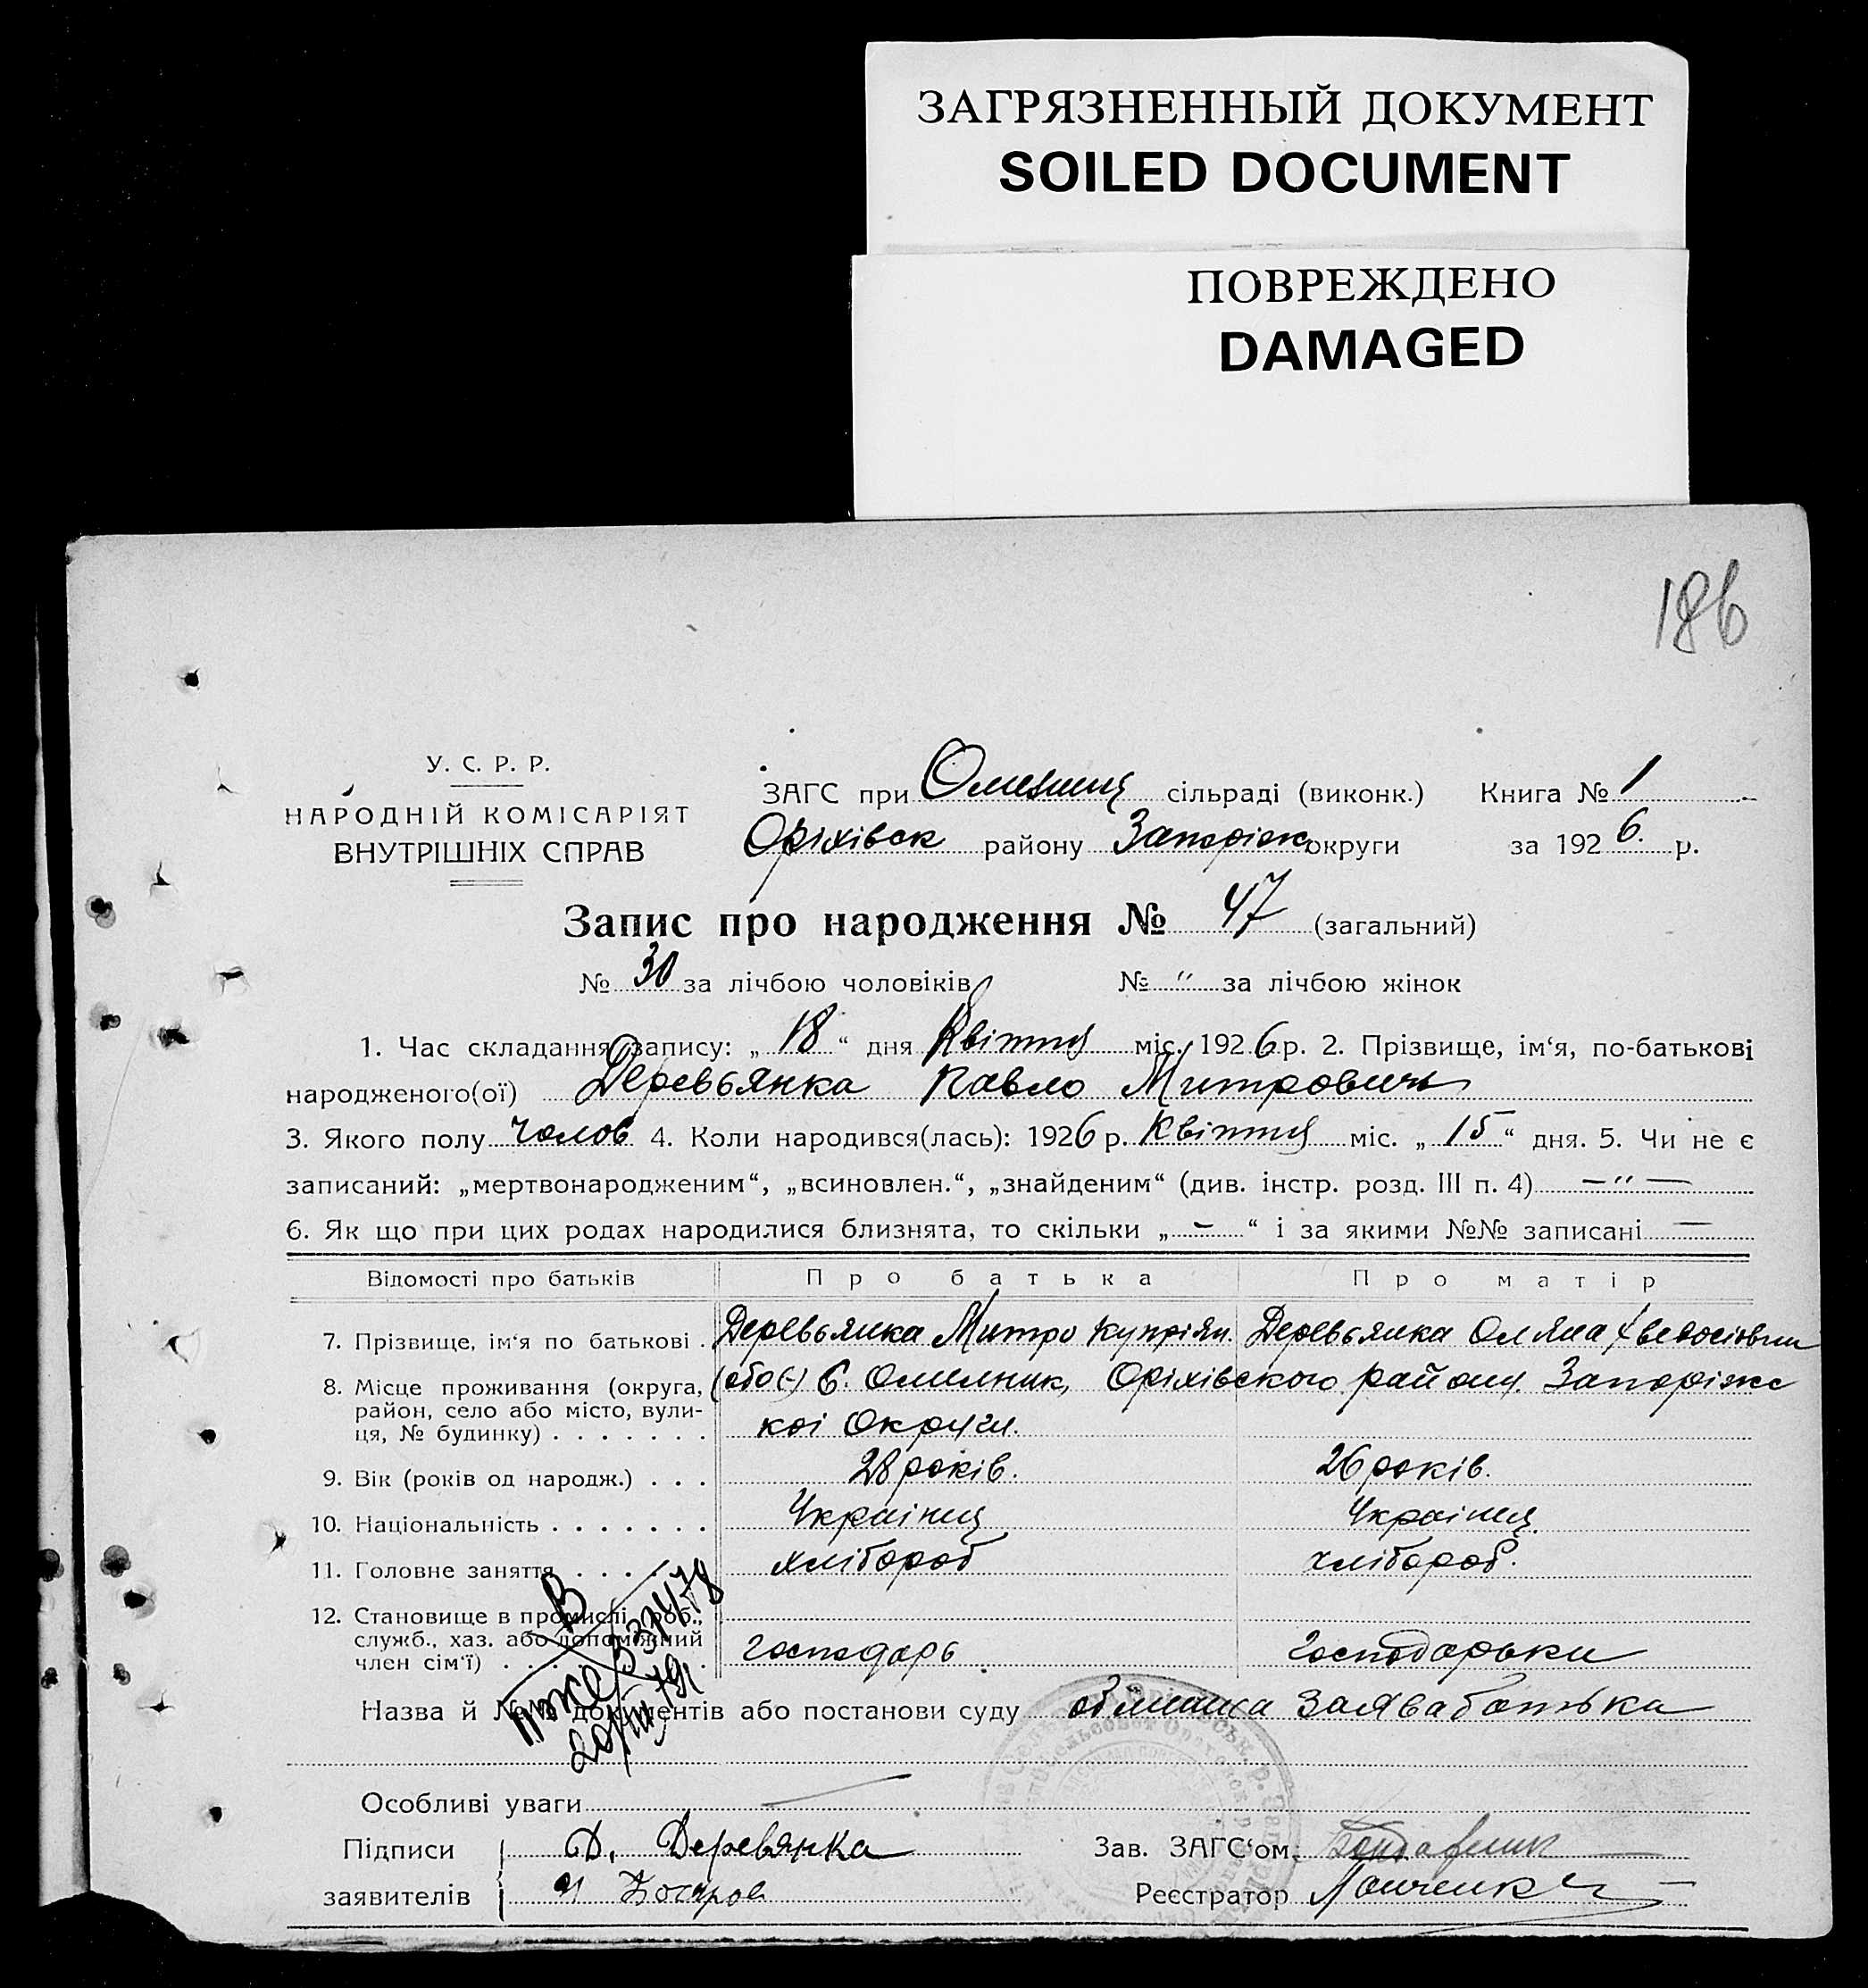 ЗАГРЯЗНЕННЫЙ ДОКУМЕНТ
SOILED DOCUMENT
ПОВРЕЖДЕНО
DAMAGED
186
У. С. Р. Р.
НАРОДНІЙ КОМІСАРІЯТ
ВНУТРІШНІХ СПРАВ
ЗАГС при сільраді (виконк.) Книга № 1
Оріхівськ району Запоріж округи за 1926 р.
Запис про народження № 47 (загальний)
№ 30 за лічбою чоловіків № " за лічбою жінок
1. Час складання запису: „ 18 “ дня Квітня міс. 1926 р. 2. Прізвище, ім‘я, по-батькові
народженого(ої) Деревьянка Павло Митрович
3. Якого полу чолов 4. Коли народився(лась): 1926 р. Квітня міс. „ 15 “ дня. 5. Чи не є
записаний: „мертвонародженим“, „всиновлен.“, „знайденим“ (див. інстр. розд. III п. 4) — " —
6. Як що при цих родах народилися близнята, то скільки „ - “ і за якими №№ записані —
Відомості про батьків Про батька Про матір
7. Прізвище, ім‘я по батькові . Деревьянка Митро Купріян. Деревьянка
8. Місце проживання (округа, район, село або місто, вулиця, № будинку) . . . . . . . с. Омельник, Оріхівского району. Запоріжс
коі Округи.
9. Вік (років од народж.) . . . 28 років. 26 років.
10. Національність . . . . . . . Украінц Украінц.
11. Головне заняття . . . . . . хлібороб хлібороб.
12. Становище в промислі, роб.,
служб., хаз. або допоміжний
член сім‘ї) . . . . . . . . . господарь господарька
Назва й №№ документів або постанови суду заява батька
Особливі уваги —
Підписи Д. Деревянка Зав. ЗАГС‘ом
заявителів Реєстратор